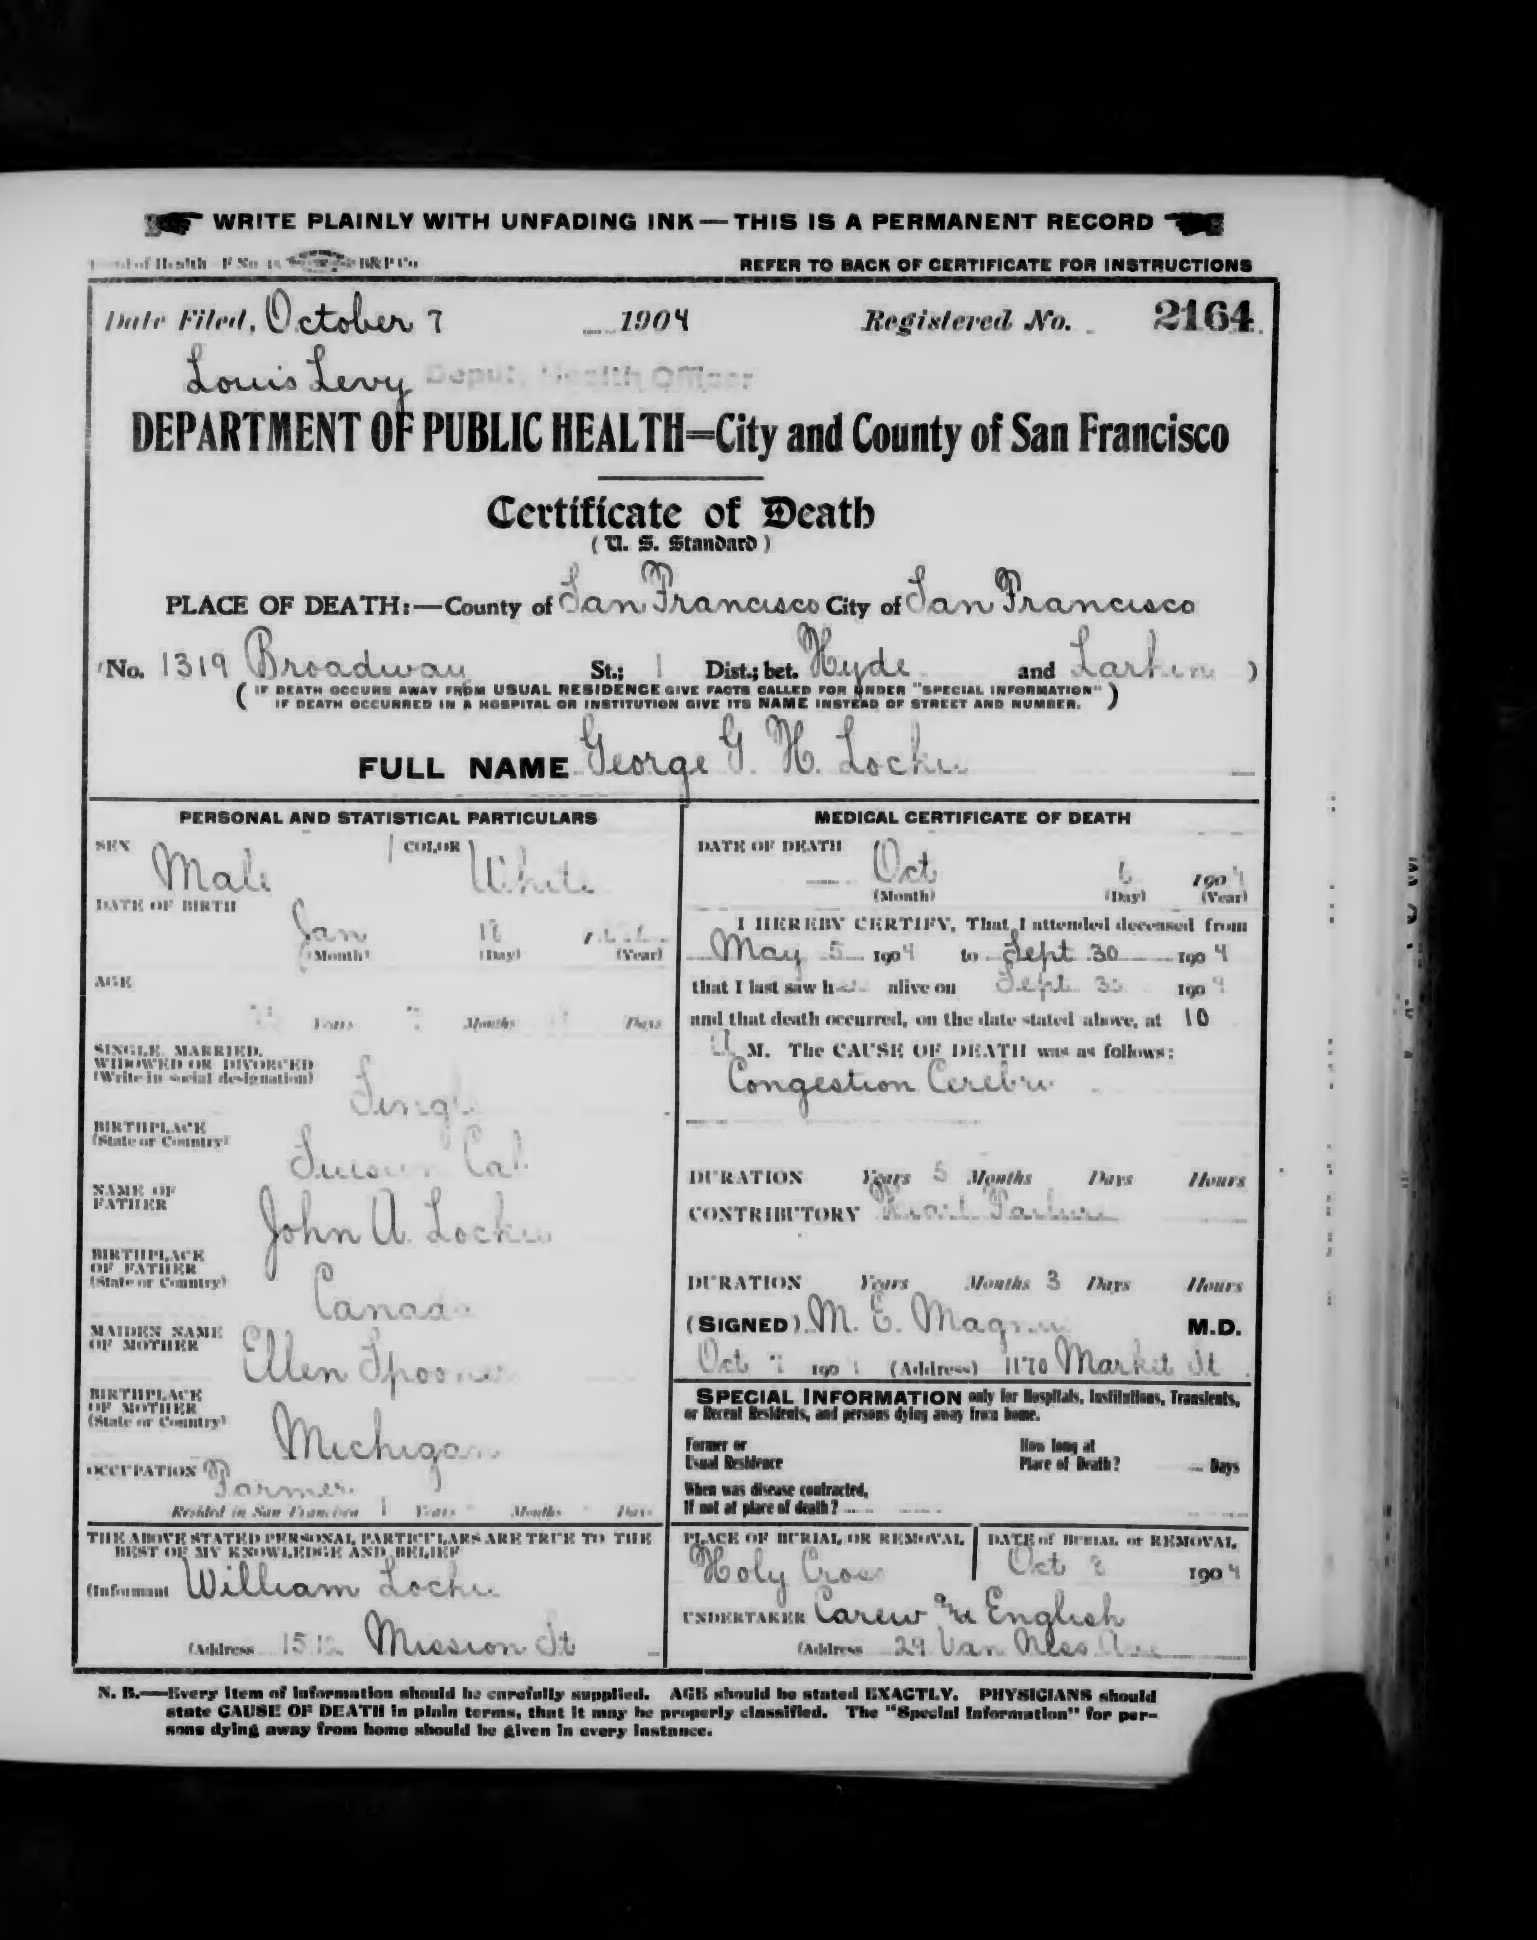 WRITE PLAINLY WITH UNFADING INK — THIS IS A PERMANENT RECORD
of Health F No. B&P Co
REFER TO BACK OF CERTIFICATE FOR INSTRUCTIONS
Date Filed, October 7 1904 Registered No. 2164
Louis Levy Deputy Health Officer
DEPARTMENT OF PUBLIC HEALTH=City and County of San Francisco
Certificate of Death
(U. S. Standard)
PLACE OF DEATH:—County of San Francisco City of San Francisco
(No. 1319 Broadway St.; 1 Dist.; bet. Hyde and Larkin )
( IF DEATH OCCURS AWAY FROM USUAL RESIDENCE GIVE FACTS CALLED FOR UNDER "SPECIAL INFORMATION"
IF DEATH OCCURRED IN A HOSPITAL OR INSTITUTION GIVE ITS NAME INSTEAD OF STREET AND NUMBER. )
FULL NAME George G. H. Locke
PERSONAL AND STATISTICAL PARTICULARS
SEX Male COLOR White
DATE OF BIRTH
Jan 18
(Month) (Day) (Year)
AGE
Years Months Days
SINGLE, MARRIED,
WIDOWED OR DIVORCED
(Write in social designation)
Single
BIRTHPLACE
(State or Country)
Suisun Cal
NAME OF
FATHER
John A. Locke
BIRTHPLACE
OF FATHER
(State or Country)
Canada
MAIDEN NAME
OF MOTHER
Ellen Spooner
BIRTHPLACE
OF MOTHER
(State or Country)
Michigan
OCCUPATION Farmer
Resided in San Francisco 1 Years Months Days
THE ABOVE STATED PERSONAL PARTICULARS ARE TRUE TO THE
BEST OF MY KNOWLEDGE AND BELIEF
(Informant William Locke
(Address 1512 Mission St
MEDICAL CERTIFICATE OF DEATH
DATE OF DEATH
Oct 6 1904
(Month) (Day) (Year)
I HEREBY CERTIFY, That I attended deceased from
May 5 1904 to Sept 30 1904
that I last saw h alive on Sept 30 1904
and that death occurred, on the date stated above, at 10
A M. The CAUSE OF DEATH was as follows:
Congestion Cerebri
DURATION Years 5 Months Days Hours
CONTRIBUTORY Heart Failure
DURATION Years Months 3 Days Hours
(SIGNED) M. E. M.D.
Oct 7 1904 (Address) 1170 Market St
SPECIAL INFORMATION only for Hospitals, Institutions, Transients,
or Recent Residents, and persons dying away from home.
Former or
Usual Residence
How long at
Place of Death? Days
When was disease contracted,
If not at place of death?
PLACE OF BURIAL OR REMOVAL
Holy Cross
DATE of BURIAL or REMOVAL
Oct 8 1904
UNDERTAKER Carew and English
(Address 29 Van Ness Ave
N. B.—Every item of information should be carefully supplied. AGE should be stated EXACTLY. PHYSICIANS should
state CAUSE OF DEATH in plain terms, that it may be properly classified. The "Special Information" for per-
sons dying away from home should be given in every instance.